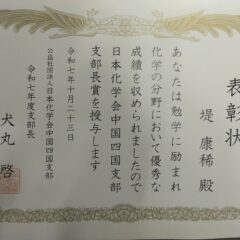 表彰状
堤 康稀 殿
あなたは勉学に励まれ
化学の分野において優秀な
成績を収められましたので
日本化学会中国四国支部
支部長賞を授与します
令和七年十月二十三日
公益社団法人日本化学会中国四国支部
令和七年度支部長
犬丸 啓